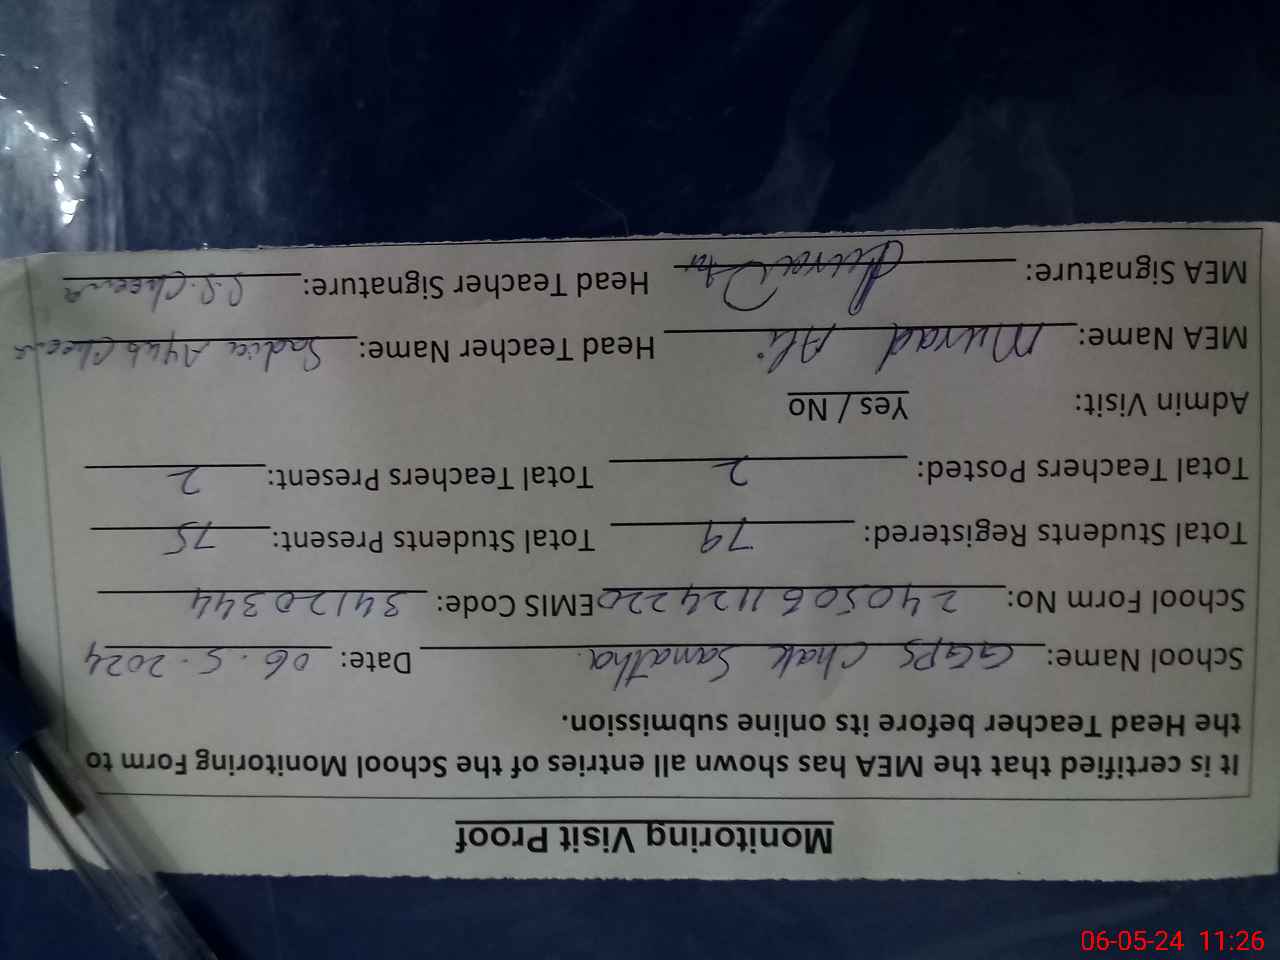 Monitoring Visit Proof
It is certified that the MEA has shown all entries of the School Monitoring Form to
the Head Teacher before its online submission.
School Name: GGPS Chak Samatha. Date: 06.5.2024
School Form No: 2405061124220 EMIS Code: 34120344
Total Students Registered: 79 Total Students Present: 75
Total Teachers Posted: 2 Total Teachers Present: 2
Admin Visit: Yes / No
MEA Name: Murad Ali Head Teacher Name: Sadia Ayub Cheema
MEA Signature: Head Teacher Signature: S.S. Cheema
06-05-24 11:26